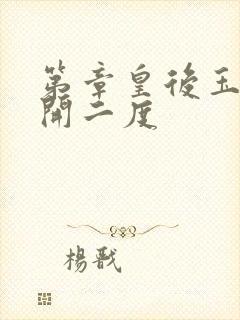 第章皇後玉
開二度
楊戩